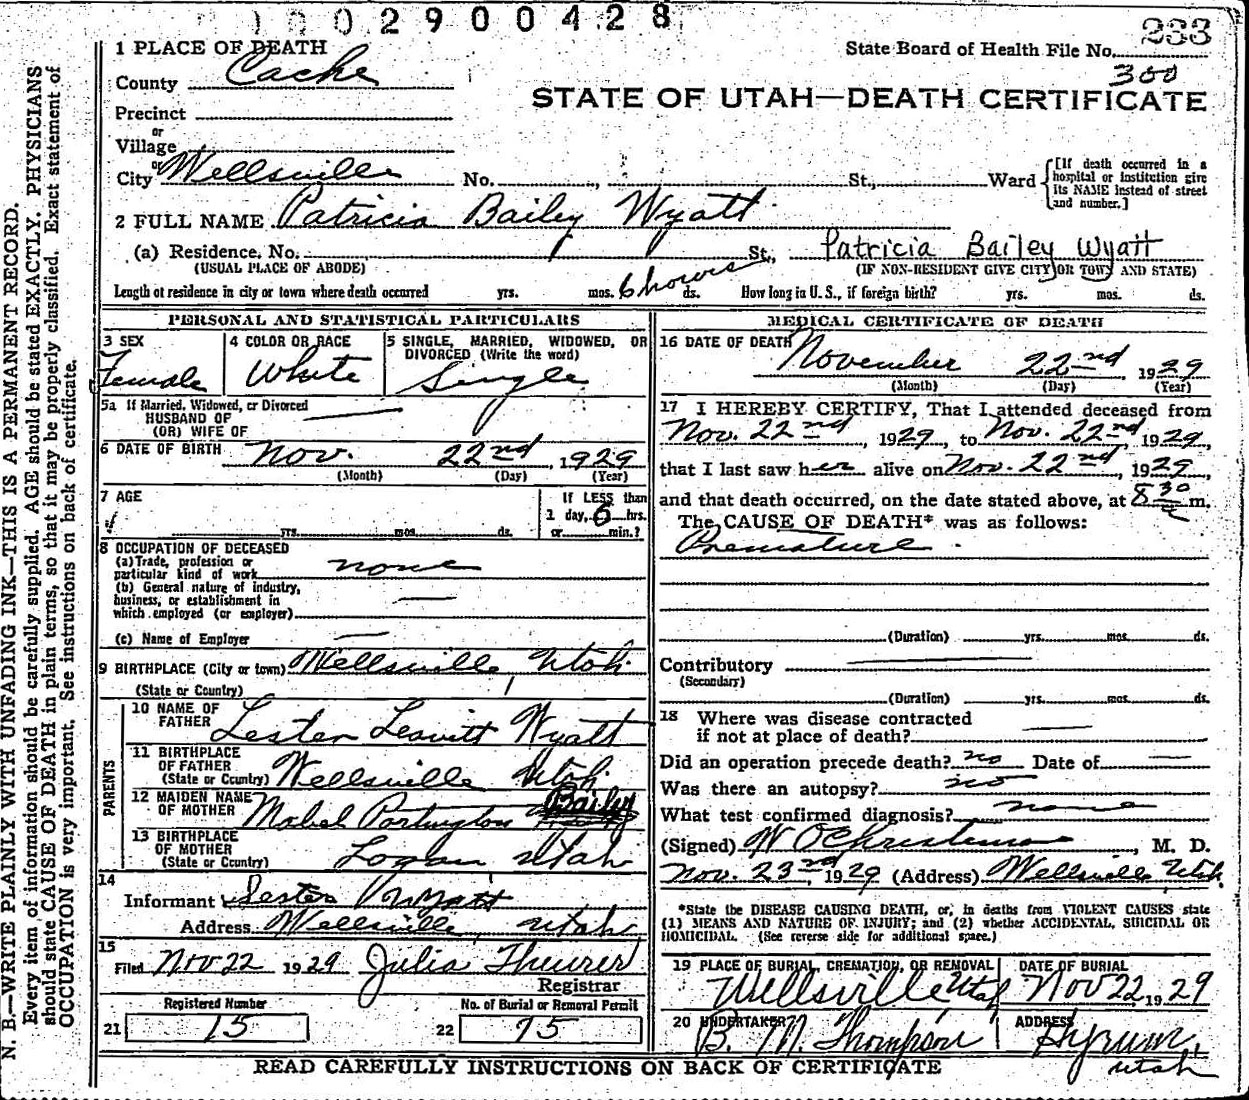 0029004 28
233
1 PLACE OF DEATH
State Board of Health File No.
County Cache
300
STATE OF UTAH—DEATH CERTIFICATE
Precinct
or
Village
or
City Wellsville No. , St., Ward
[If death occurred in a hospital or institution give its NAME instead of street and number.]
2 FULL NAME Patricia Bailey Wyatt
(a) Residence, No. St., Patricia Bailey Wyatt
(USUAL PLACE OF ABODE) (IF NON-RESIDENT GIVE CITY OR TOWN AND STATE)
Length of residence in city or town where death occurred yrs. mos. 6 hours ds. How long in U. S., if foreign birth? yrs. mos. ds.
PERSONAL AND STATISTICAL PARTICULARS
3 SEX
Female
4 COLOR OR RACE
White
5 SINGLE, MARRIED, WIDOWED, OR DIVORCED (Write the word)
Single
5a If Married, Widowed, or Divorced
HUSBAND OF
(OR) WIFE OF
6 DATE OF BIRTH Nov. 22nd, 1929
(Month) (Day) (Year)
7 AGE
yrs. mos. ds.
If LESS than
1 day, 6 hrs.
or min.?
8 OCCUPATION OF DECEASED
(a) Trade, profession or
particular kind of work none
(b) General nature of industry,
business, or establishment in
which employed (or employer) —
(c) Name of Employer —
9 BIRTHPLACE (City or town) Wellsville, Utah
(State or Country)
PARENTS
10 NAME OF
FATHER Lester Leavitt Wyatt
11 BIRTHPLACE
OF FATHER
(State or Country) Wellsville Utah
12 MAIDEN NAME
OF MOTHER Mabel Partington Bailey
13 BIRTHPLACE
OF MOTHER
(State or Country) Logan, Utah
14
Informant Lester Wyatt
Address Wellsville, Utah
15
Filed Nov 22 1929 Julia Theurer
Registrar
Registered Number
21 15
No. of Burial or Removal Permit
22 75
MEDICAL CERTIFICATE OF DEATH
16 DATE OF DEATH November 22nd 1929
(Month) (Day) (Year)
17 I HEREBY CERTIFY, That I attended deceased from
Nov. 22nd, 1929, to Nov. 22nd, 1929,
that I last saw her alive on Nov. 22nd, 1929,
and that death occurred, on the date stated above, at 8 30 m.
The CAUSE OF DEATH* was as follows:
Premature.
(Duration) yrs. mos. ds.
Contributory
(Secondary)
(Duration) yrs. mos. ds.
18 Where was disease contracted
if not at place of death? —
Did an operation precede death? no Date of —
Was there an autopsy? no
What test confirmed diagnosis? none
(Signed) W O Christensen, M. D.
Nov. 23rd, 1929 (Address) Wellsville Utah.
*State the DISEASE CAUSING DEATH, or, in deaths from VIOLENT CAUSES state
(1) MEANS AND NATURE OF INJURY; and (2) whether ACCIDENTAL, SUICIDAL OR
HOMICIDAL. (See reverse side for additional space.)
19 PLACE OF BURIAL, CREMATION, OR REMOVAL
Wellsville, Utah
DATE OF BURIAL
Nov 22 1929
20 UNDERTAKER
B. M. Thompson
ADDRESS
Hyrum, Utah
READ CAREFULLY INSTRUCTIONS ON BACK OF CERTIFICATE
N. B.—WRITE PLAINLY WITH UNFADING INK—THIS IS A PERMANENT RECORD.
Every item of information should be carefully supplied. AGE should be stated EXACTLY. PHYSICIANS
should state CAUSE OF DEATH in plain terms, so that it may be properly classified. Exact statement of
OCCUPATION is very important. See instructions on back of certificate.